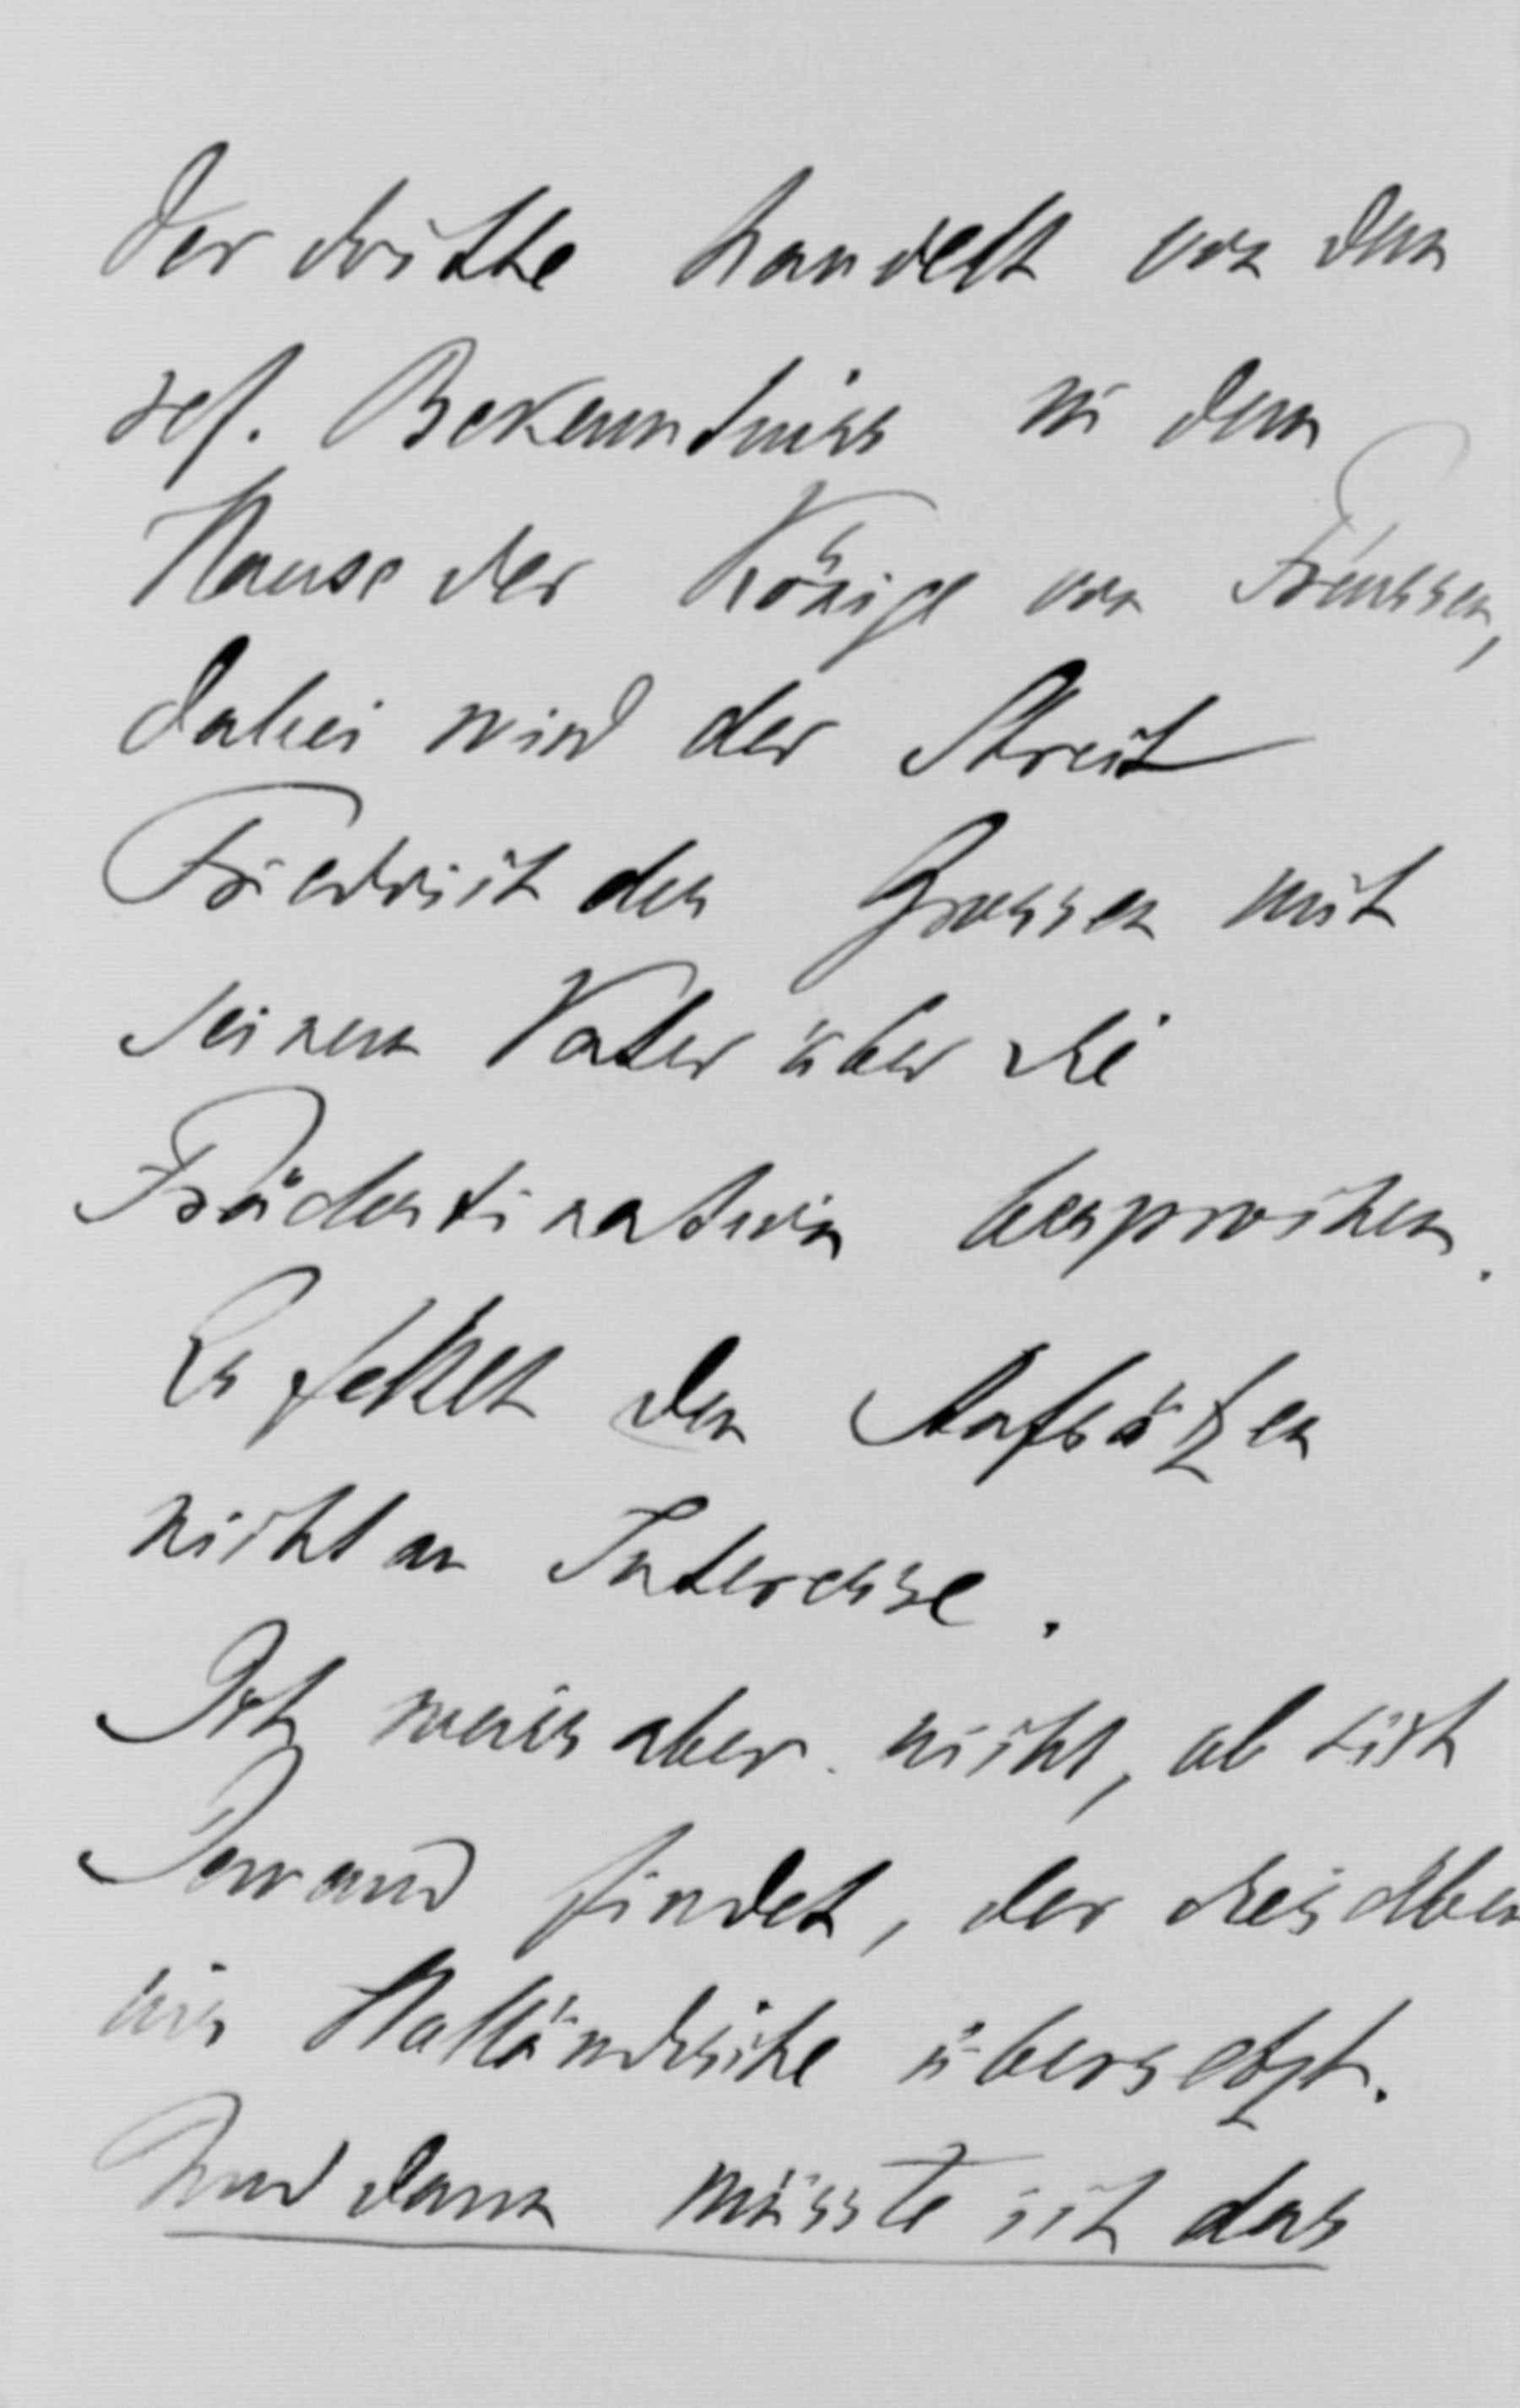 Der dritte handelt von dem
ref. Bekenntniss in dem
Hause der Könige von Preussen,
dabei wird der Streit
Friedrich des Grossen mit
seinem Vater über die
Prädestination besprochen.
Es fehlet den Aufsätzen
nicht an Interesse.
Ich weiss aber nicht, ob sich
Jemand findet, der dieselben
ins Holländische übersetzt.
Und dann müsste ich das